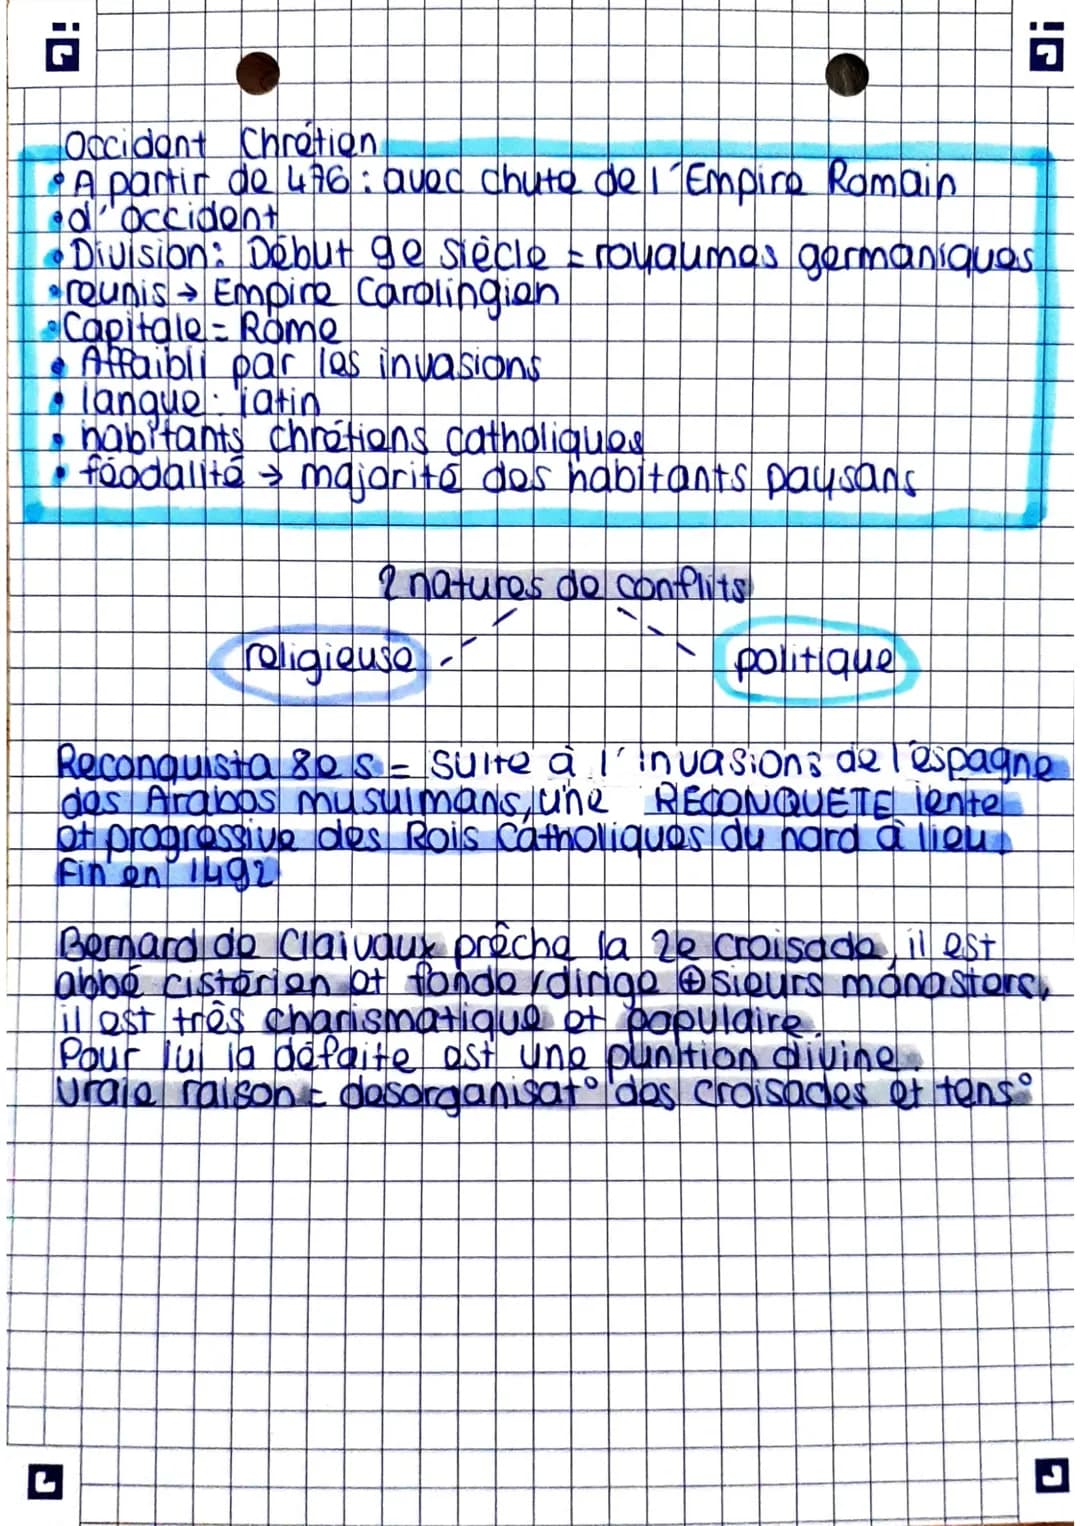 Occident Chrétien
• A partir de 476 : avec chute de l'Empire Romain
• d'occident
• Division : Début 9e siècle = royaumes germaniques
• reunis → Empire Carolingien
• Capitale = Rome
• Affaibli par les invasions
• langue : latin
• habitants chrétiens catholiques
• féodalité → majorité des habitants paysans
2 natures de conflits
religieuse
politique
Reconquista 8e s = suite à l'invasions de l'espagne
des Arabes musulmans, une RECONQUETE lente
et progressive des Rois Catholiques du nord à lieu.
Fin en 1492
Bernard de Claivaux prêche la 2e croisade, il est
abbé cistérien et fonde/dirige ⊕sieurs monasters,
il est três charismatique et populaire.
Pour lui la défaite est une punition divine.
vraie raison = desorganisat° des croisades et tens°